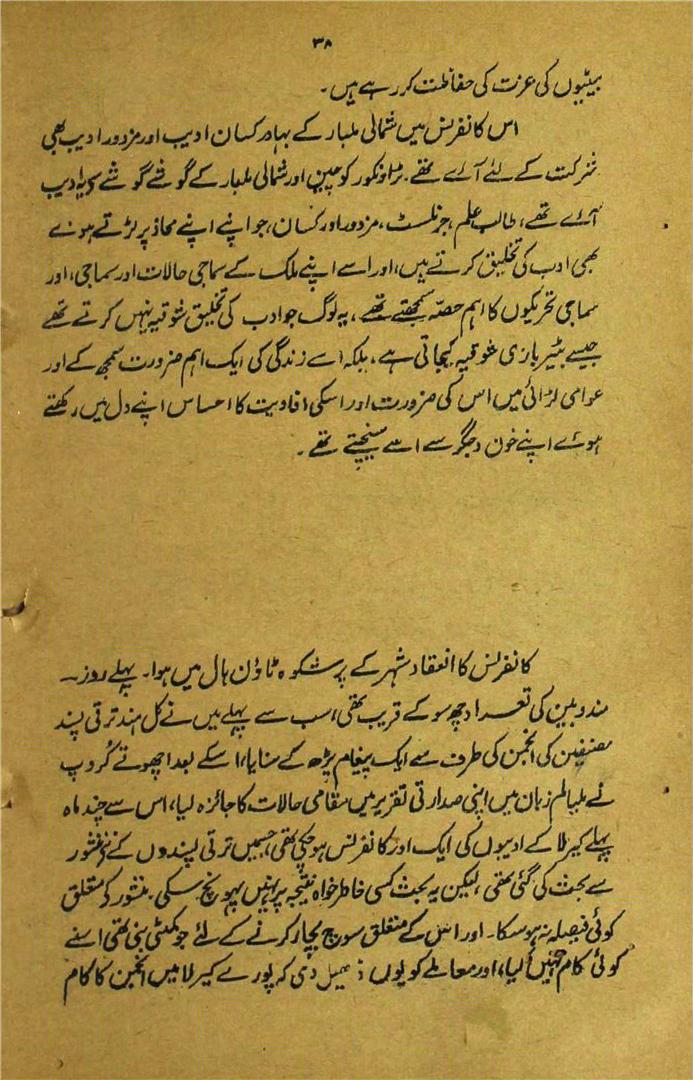 ۳۸
بیٹیوں کی عزت کی حفاظت کر رہے ہیں۔
اس کانفرنس میں شمالی ملبار کے بہادر کسان ادیب اور مزدور ادیب بھی
شرکت کے لئے آئے تھے۔ ٹراونکور کوچین اور شمالی ملبار کے گوشے گوشے سے یہ ادیب
آئے تھے، طالب علم، جرنلسٹ، مزدور اور کسان، جو اپنے اپنے محاذ پر لڑتے ہوئے
بھی ادب کی تخلیق کرتے ہیں، اور اسے اپنے ملک کے سماجی حالات اور سماجی، اور
سماجی تحریکوں کا اہم حصہ سمجھتے تھے، یہ لوگ جو ادب کی تخلیق شوقیہ نہیں کرتے تھے
جیسے بٹیر بازی شوقیہ کیجاتی ہے، بلکہ اسے زندگی کی ایک اہم ضرورت سمجھ کے اور
عوامی لڑائی میں اس کی ضرورت اور اسکی افادیت کا احساس اپنے دل میں رکھتے
ہوئے اپنے خون دجگر سے اسے سینچتے تھے۔
کانفرنس کا انعقاد شہر کے پرشکوہ ٹاؤن ہال میں ہوا۔ پہلے روز۔
مندوبین کی تعداد چھ سو کے قریب تھی، سب سے پہلے میں نے کل ہند ترقی پسند
مصنفین کی انجمن کی طرف سے ایک پیغام پڑھ کے سنایا، اسکے بعد اچھوتے کُروپ
نے ملیالم زبان میں اپنی صدارتی تقریر میں مقامی حالات کا جائزہ لیا، اس سے چند ماہ
پہلے کیرلا کے ادیبوں کی ایک اور کانفرنس ہو چکی تھی، جسمیں ترقی پسندوں کے منشور
سے بحث کی گئی تھی، لیکن یہ بحث کسی خاطر خواہ نتیجہ پر نہیں پہونچ سکی۔ منشور کے متعلق
کوئی فیصلہ نہ ہو سکا۔ اور اس کے متعلق سوچ بچار کرنے کے لئے جو کمیٹی بنی تھی اسنے
کوئی کام نہیں کیا، اور معاملے کو یوں ڈھیل دی کہ پورے کیرلا میں انجمن کا کام